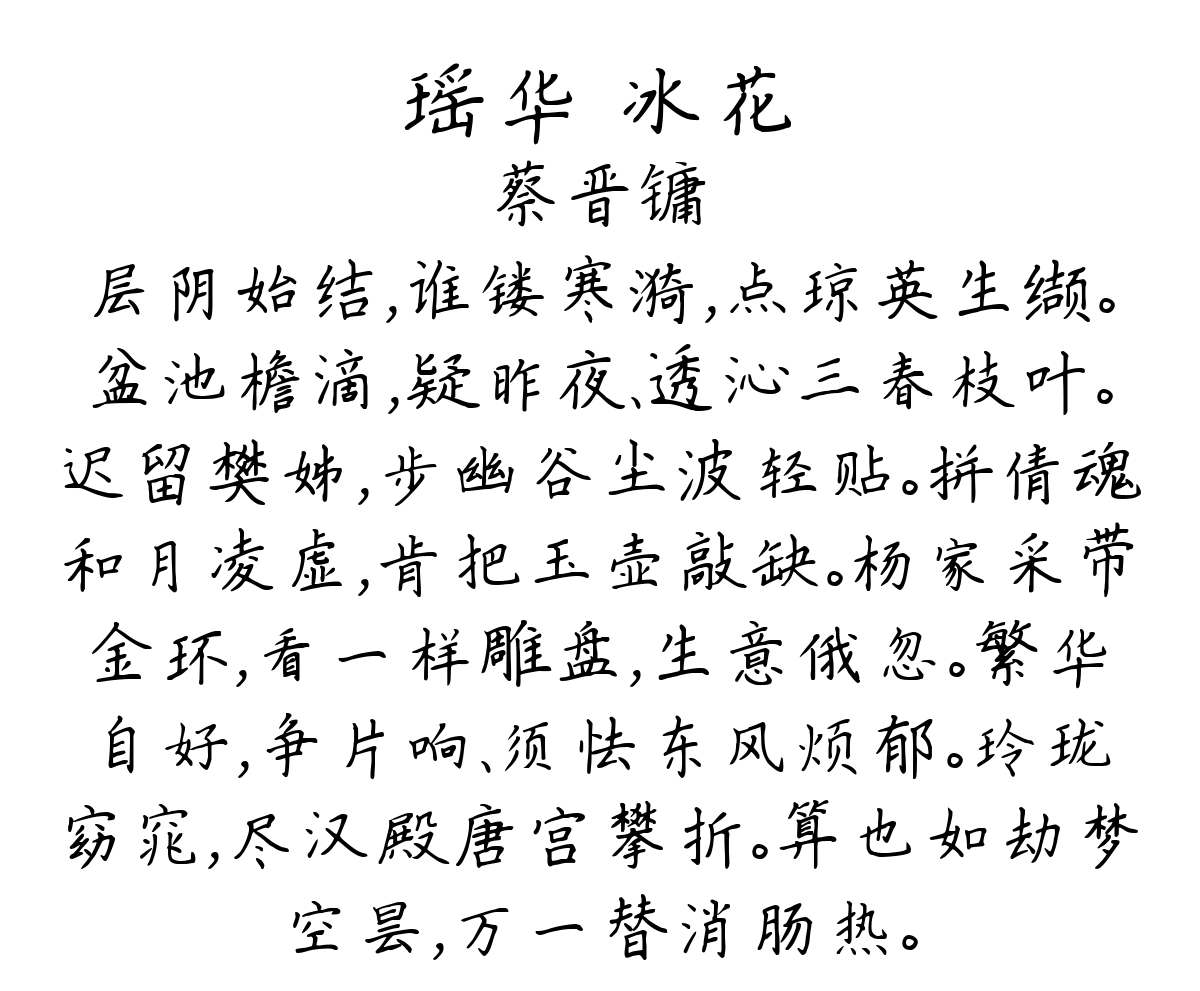 瑶华 冰花
蔡晋镛
层阴始结,谁镂寒漪,点琼英生缬。
盆池檐滴,疑昨夜、透沁三春枝叶。
迟留樊姊,步幽谷尘波轻贴。拼倩魂
和月凌虚,肯把玉壶敲缺。杨家采带
金环,看一样雕盘,生意俄忽。繁华
自好,争片响、须怯东风烦郁。玲珑
窈窕,尽汉殿唐宫攀折。算也如劫梦
空昙,万一替消肠热。